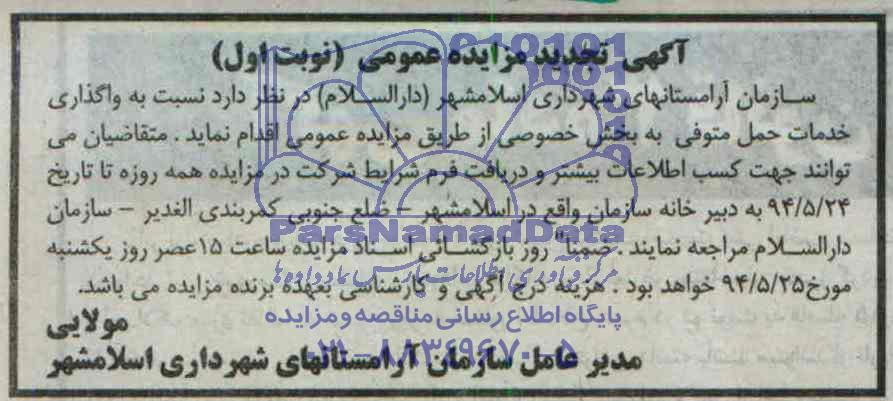 آگهی تجدید مزایده عمومی (نوبت اول)
سازمان آرامستانهای شهرداری اسلامشهر (دارالسلام) در نظر دارد نسبت به واگذاری
خدمات حمل متوفی به بخش خصوصی از طریق مزایده عمومی اقدام نماید. متقاضیان می
توانند جهت کسب اطلاعات بیشتر و دریافت فرم شرایط شرکت در مزایده همه روزه تا تاریخ
۹۴/۵/۲۴ به دبیر خانه سازمان واقع در اسلامشهر – ضلع جنوبی کمربندی الغدیر – سازمان
ParsNamadData
دارالسلام مراجعه نمایند. ضمنا" روز بازگشائی اسناد مزایده ساعت ۱۵ عصر روز یکشنبه
مرکز فرآوری اطلاعات پارس نماد داده‌ها
مورخ ۹۴/۵/۲۵ خواهد بود. هزینه درج آگهی و کارشناسی بعهده برنده مزایده می باشد.
پایگاه اطلاع رسانی مناقصه و مزایده
مولایی
۰۲۱-۸۸۳۴۹۶۷۰-۵
مدیر عامل سازمان آرامستانهای شهرداری اسلامشهر